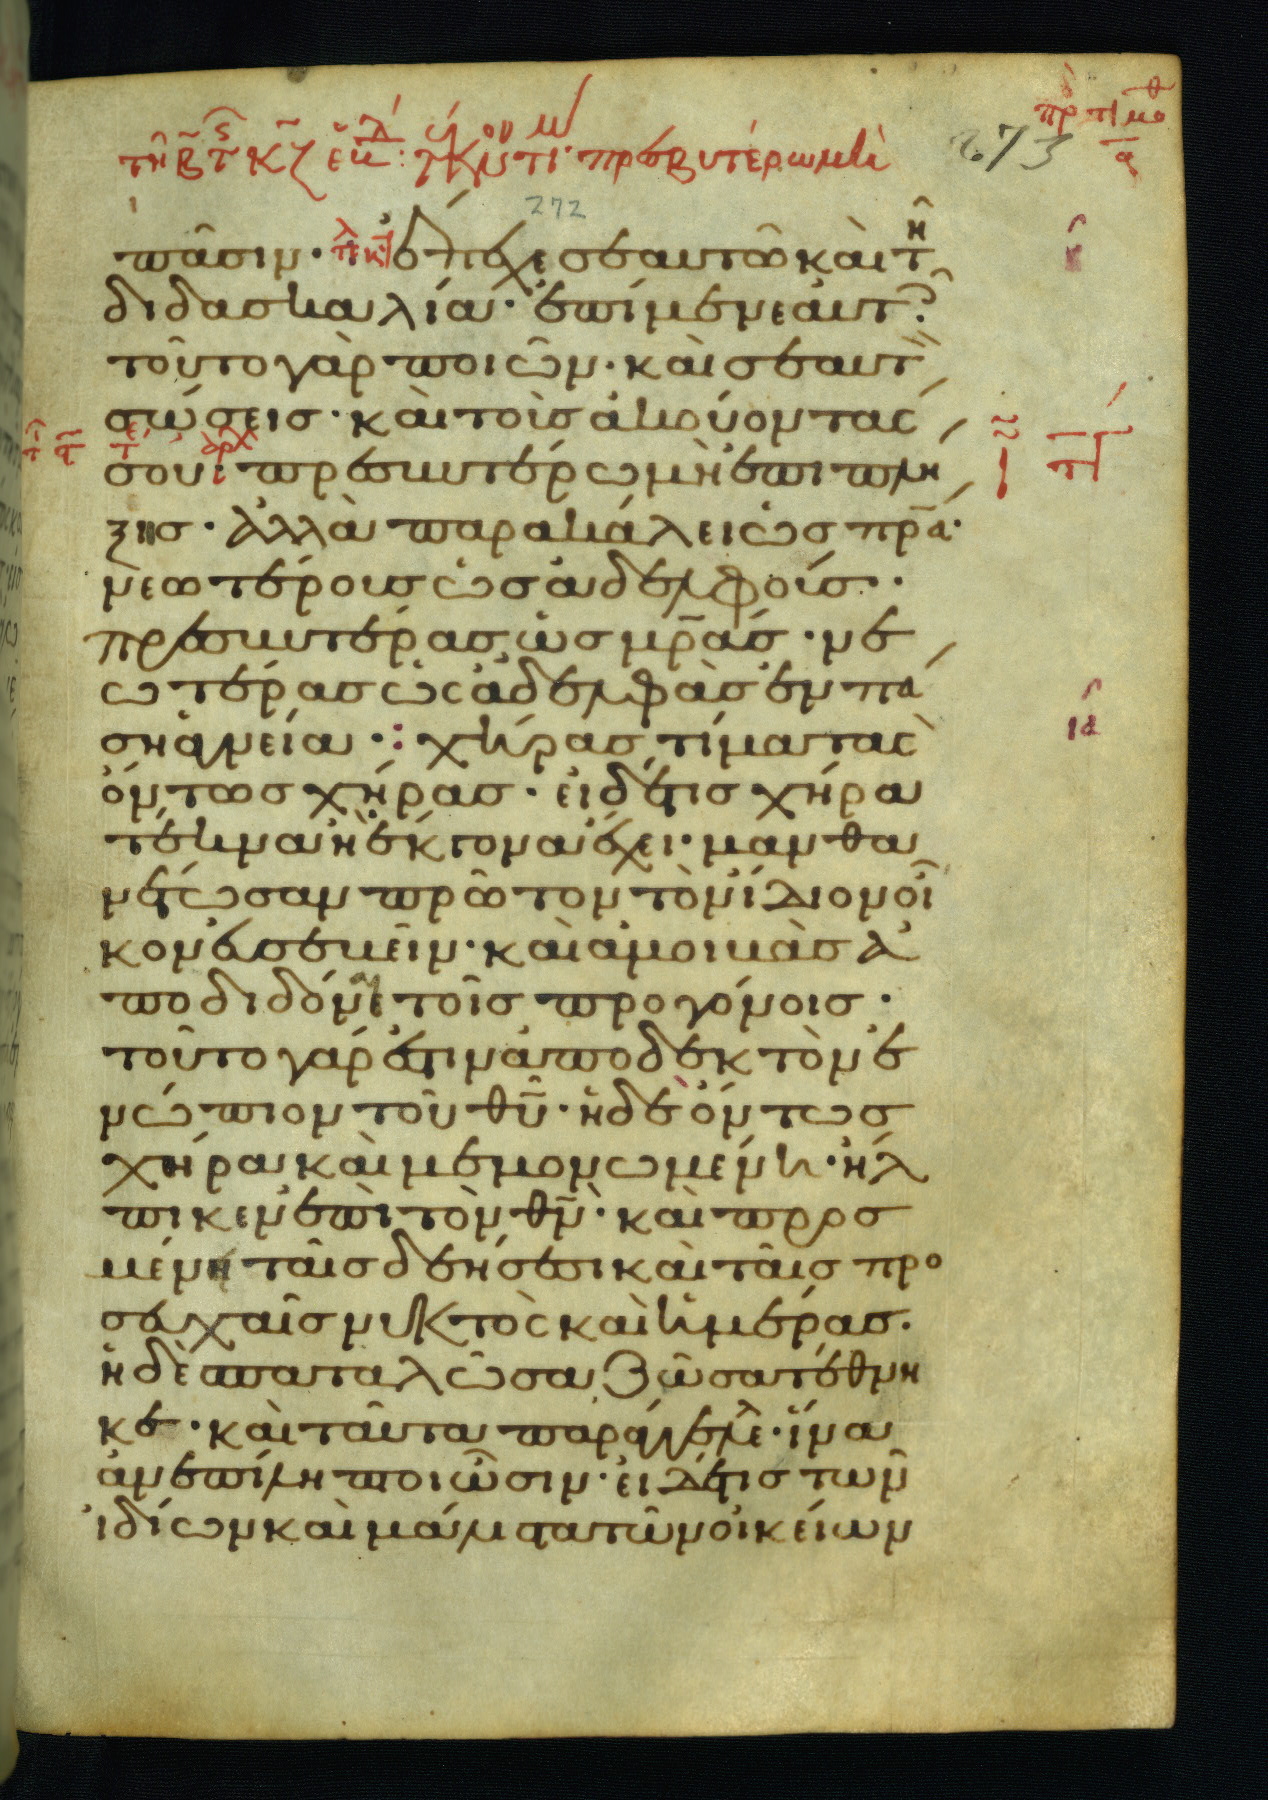 πρ τιμοθ
α
τῆ β τ κζ ἑβ τέκνον τι πρεσβυτέρω μὴ
273
272
πᾶσιν· ἔπεχε σεαυτῶ καὶ τῆ
διδασκαλία· ἐπίμενε αὐτοῖς
τοῦτο γὰρ ποιῶν· καὶ σεαυτὸν
σώσεις· καὶ τοὺς ἀκούοντάς
σου· πρεσβυτέρω μὴ ἐπιπλή
ξης· ἀλλὰ παρακάλει ὡς πρα·
νεωτέρους ὡς ἀδελφούς·
πρεσβυτέρας ὡς μρας· νε
ωτέρας ὡς ἀδελφὰς ἐν πά
ση ἁγνεία· χήρας τίμα τὰς
ὄντως χήρας· εἰ δέ τις χήρα
τέκνα ἢ ἔκγονα ἔχει· μανθα
νέτωσαν πρῶτον τὸν ἴδιον οἶ
κον εὐσεβεῖν· καὶ ἀμοιβὰς ἀ
ποδιδόναι τοῖς προγόνοις·
τοῦτο γάρ ἐστιν ἀποδεκτὸν ἐ
νώπιον τοῦ θυ· ἡ δὲ ὄντως
χήρα καὶ μεμονωμένη· ἤλ
πικεν ἐπὶ τὸν θν· καὶ προσ
μένη ταῖς δεήσεσι καὶ ταῖς προ
σευχαῖς νυκτὸς καὶ ἡμέρας·
ἡ δὲ σπαταλῶσα ζῶσα τέθνη
κε· καὶ ταῦτα παράγγελλε· ἵνα
ἀνεπίληπτοι ὦσιν· εἰ δέ τις τῶν
ἰδίων καὶ μάλιστα τῶν οἰκείων